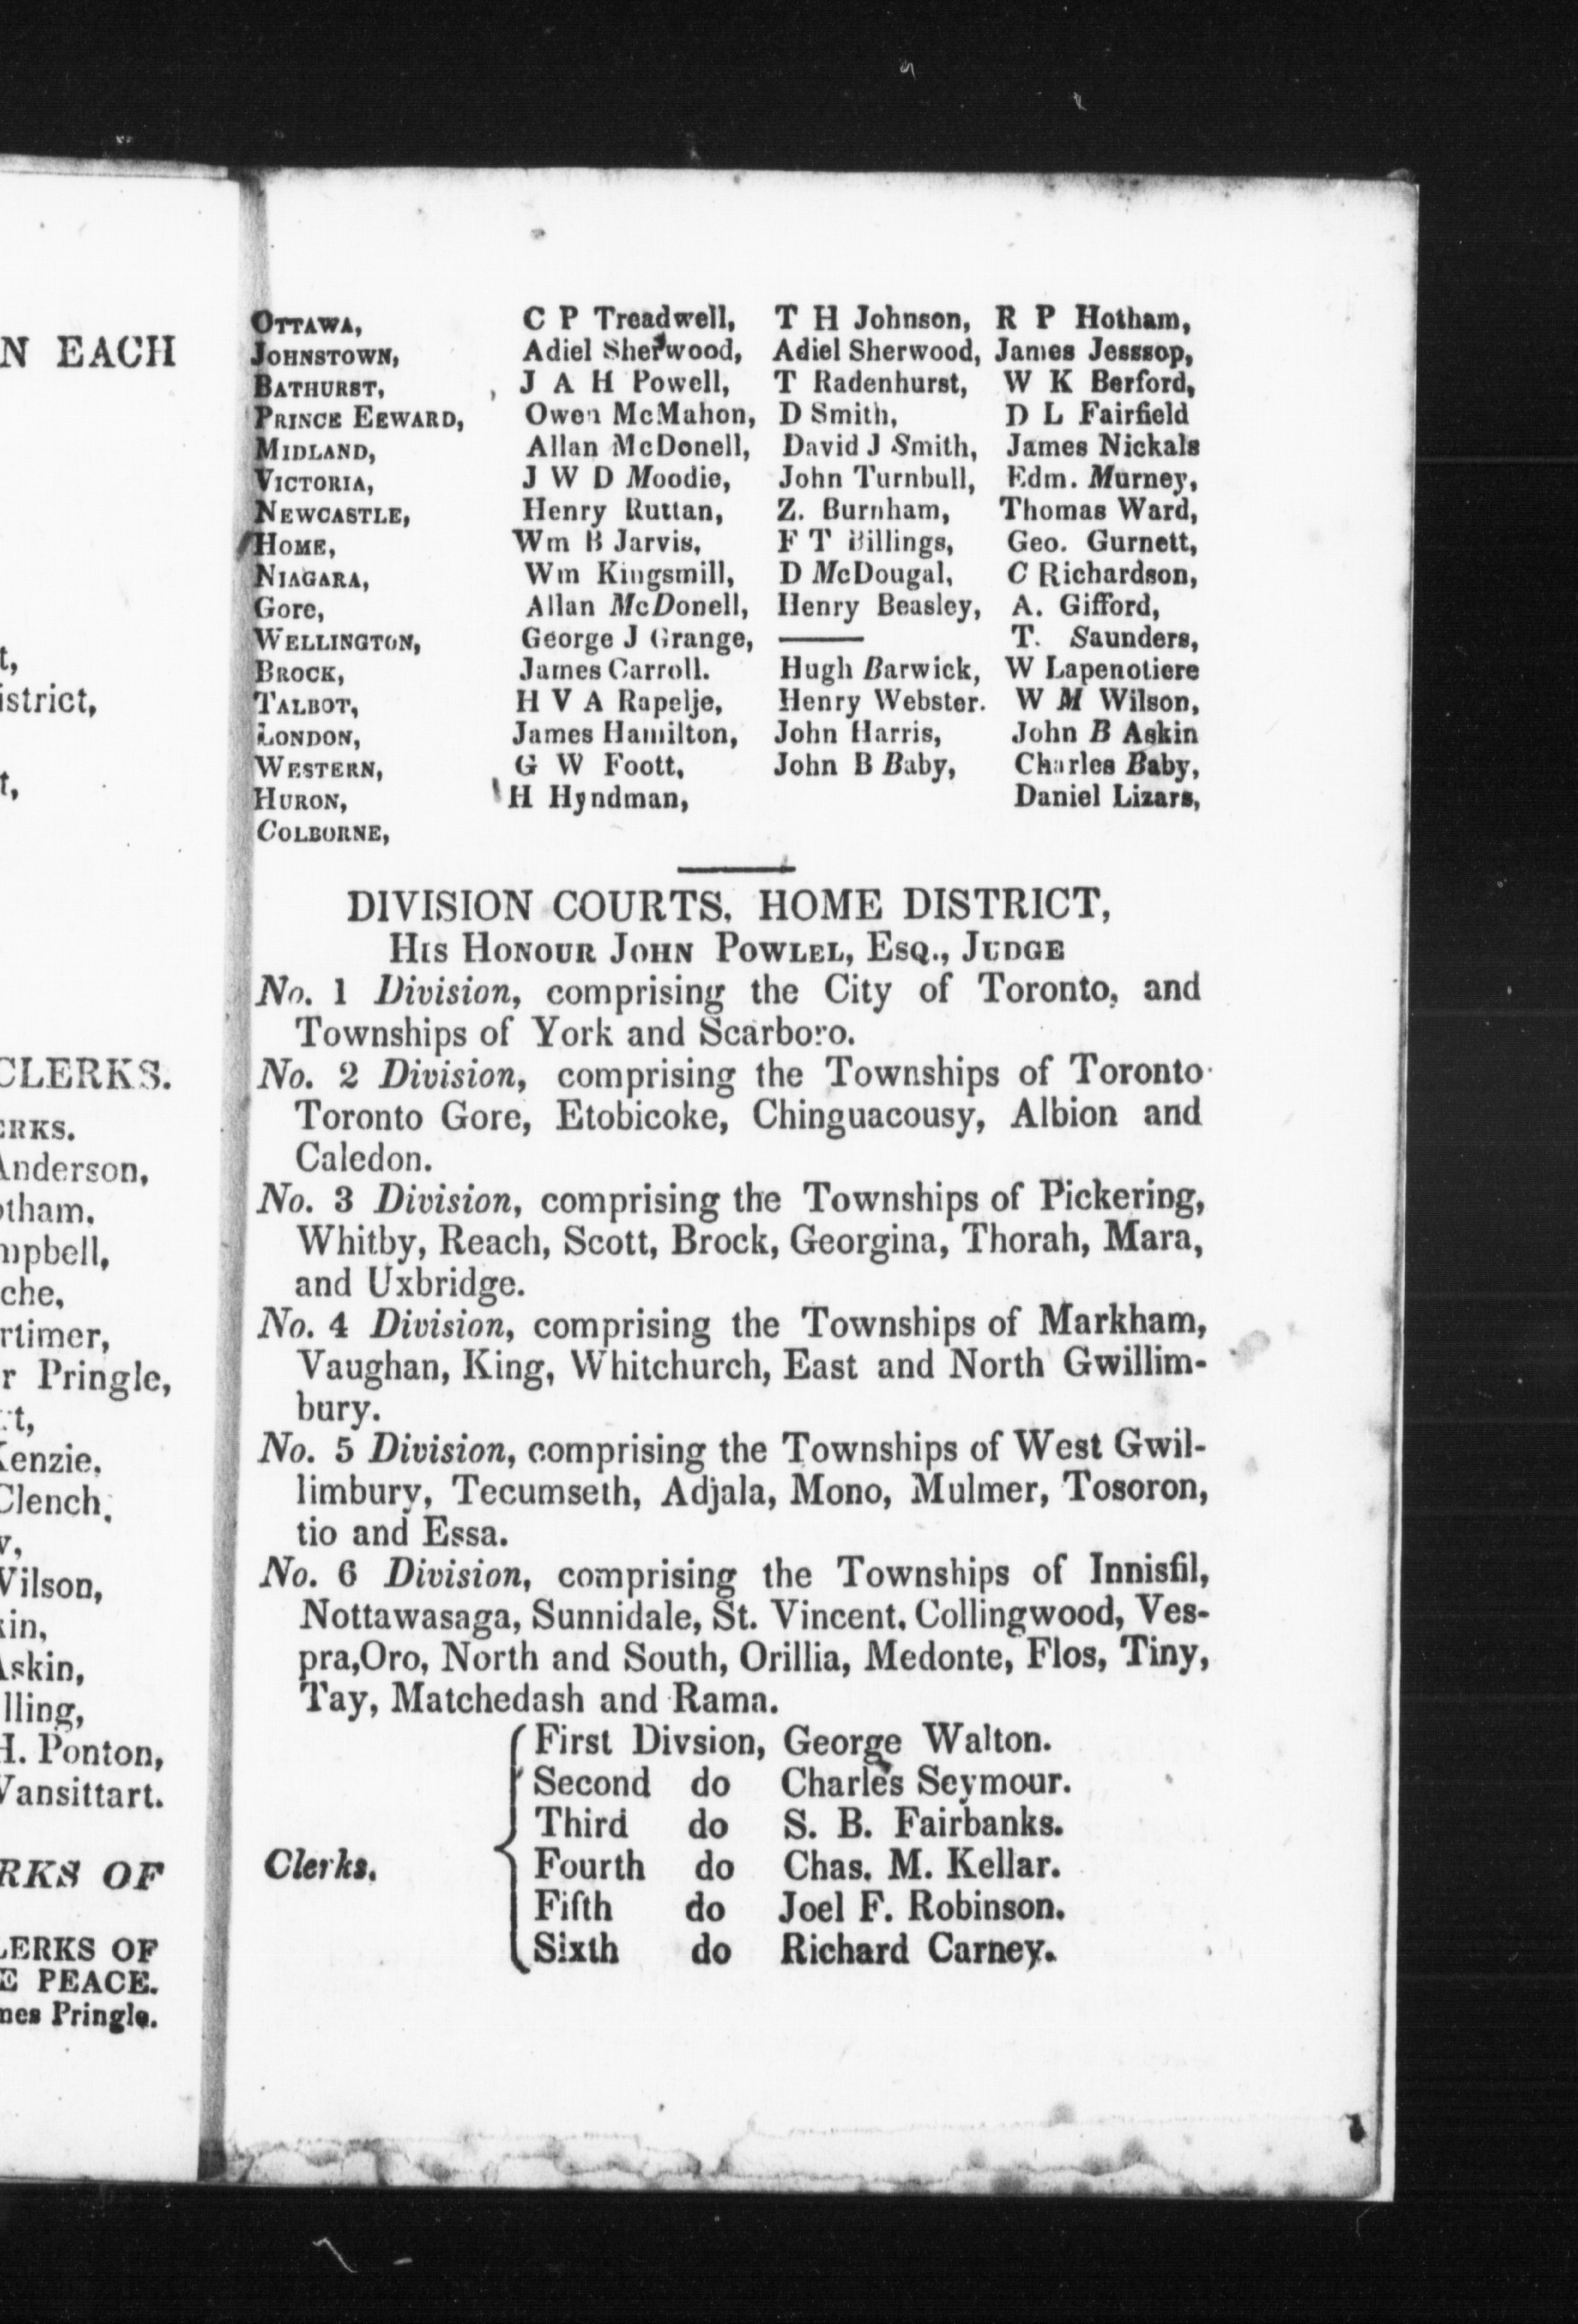 N EACH
t,
istrict,
t,
CLERKS.
ERKS.
Anderson,
otham.
mpbell,
che,
rtimer,
r Pringle,
rt,
Kenzie.
Clench.
v,
Wilson,
kin,
Askin,
lling,
H. Ponton,
Vansittart.
RKS OF
LERKS OF
E PEACE.
mes Pringle.
OTTAWA, C P Treadwell, T H Johnson, R P Hotham,
JOHNSTOWN, Adiel Sherwood, Adiel Sherwood, James Jesssop,
BATHURST, J A H Powell, T Radenhurst, W K Berford,
PRINCE EEWARD, Owen McMahon, D Smith, D L Fairfield
MIDLAND, Allan McDonell, David J Smith, James Nickals
VICTORIA, J W D Moodie, John Turnbull, Edm. Murney,
NEWCASTLE, Henry Ruttan, Z. Burnham, Thomas Ward,
HOME, Wm B Jarvis, F T Billings, Geo. Gurnett,
NIAGARA, Wm Kingsmill, D McDougal, C Richardson,
Gore, Allan McDonell, Henry Beasley, A. Gifford,
WELLINGTON, George J Grange, —— T. Saunders,
BROCK, James Carroll. Hugh Barwick, W Lapenotiere
TALBOT, H V A Rapelje, Henry Webster. W M Wilson,
LONDON, James Hamilton, John Harris, John B Askin
WESTERN, G W Foott, John B Baby, Charles Baby,
HURON, H Hyndman, Daniel Lizars,
COLBORNE,
DIVISION COURTS, HOME DISTRICT,
HIS HONOUR JOHN POWLEL, ESQ., JUDGE
No. 1 Division, comprising the City of Toronto, and
Townships of York and Scarboro.
No. 2 Division, comprising the Townships of Toronto
Toronto Gore, Etobicoke, Chinguacousy, Albion and
Caledon.
No. 3 Division, comprising the Townships of Pickering,
Whitby, Reach, Scott, Brock, Georgina, Thorah, Mara,
and Uxbridge.
No. 4 Division, comprising the Townships of Markham,
Vaughan, King, Whitchurch, East and North Gwillim-
bury.
No. 5 Division, comprising the Townships of West Gwil-
limbury, Tecumseth, Adjala, Mono, Mulmer, Tosoron,
tio and Essa.
No. 6 Division, comprising the Townships of Innisfil,
Nottawasaga, Sunnidale, St. Vincent, Collingwood, Ves-
pra,Oro, North and South, Orillia, Medonte, Flos, Tiny,
Tay, Matchedash and Rama.
First Divsion, George Walton.
Second do Charles Seymour.
Third do S. B. Fairbanks.
Clerks. Fourth do Chas. M. Kellar.
Fifth do Joel F. Robinson.
Sixth do Richard Carney.